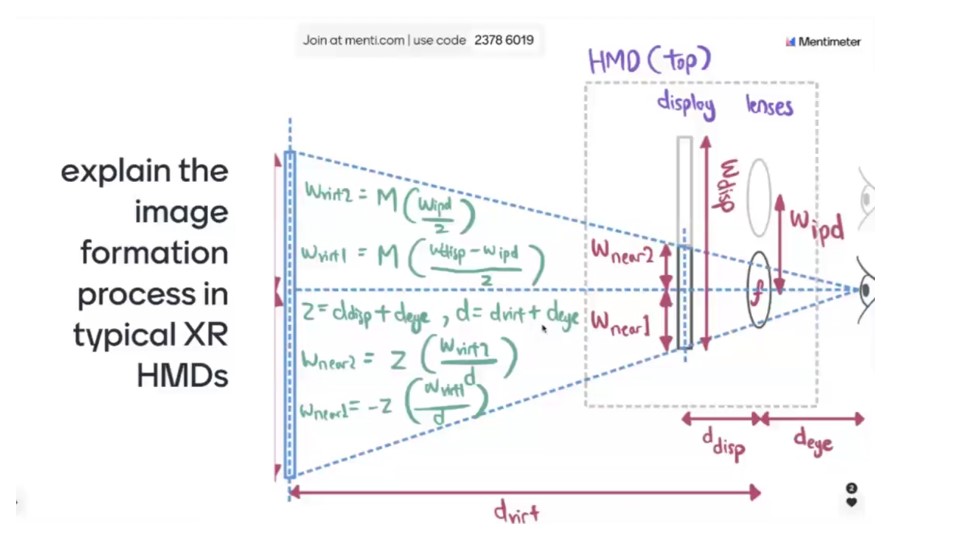 Join at menti.com | use code 2378 6019
Mentimeter
explain the
image
formation
process in
typical XR
HMDs
HMD (top)
display
lenses
Wvirt2 = M (Wipd/2)
Wvirt1 = M (Wdisp - Wipd/2)
Z = ddisp + deye, d = dvirt + deye
Wnear2 = Z (Wvirt2/d)
Wnear1 = -Z (Wvirt1/d)
Wdisp
Wipd
Wnear2
Wnear1
f
ddisp
deye
dvirt
2